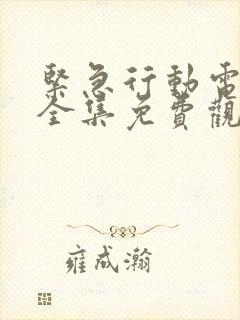 緊急行動電
全集免費觀
雍成瀚